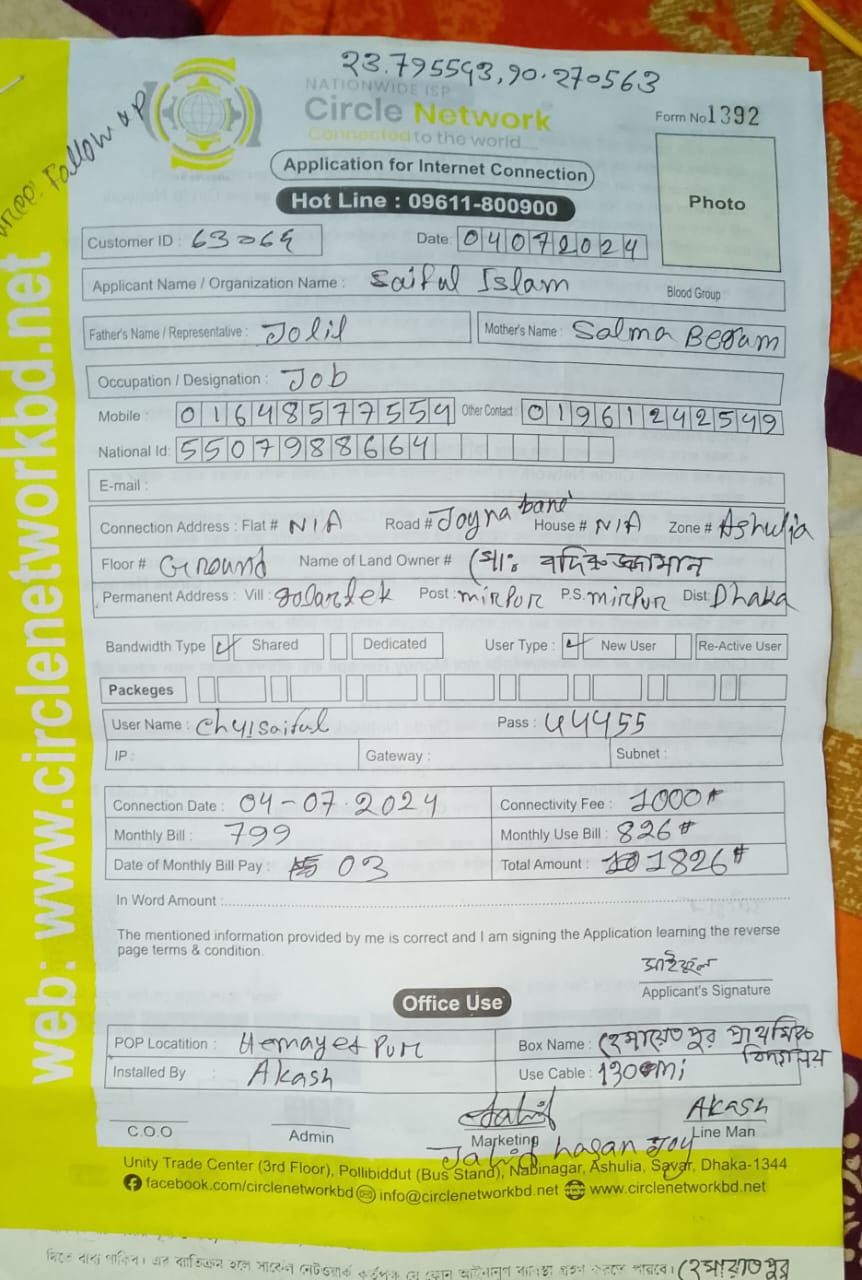 23.795543,90.270563
NATIONWIDE ISP
Circle Network
Connected to the world
Form No 1392
Follow up
Application for Internet Connection
Photo
Hot Line : 09611-800900
Customer ID : 63069 Date: 04072024
Applicant Name / Organization Name : Saiful Islam Blood Group
Father's Name / Representative : Jolil Mother's Name : Salma Begum
Occupation / Designation : Job
Mobile : 01648577554 Other Contact : 01961242549
National Id: 5507988664
E-mail :
Connection Address : Flat # N/A Road # Joynabari House # N/A Zone # Ashulia
Floor # Ground Name of Land Owner # মোঃ
Permanent Address : Vill : golartek Post : mirpur P.S. mirpur Dist: Dhaka
Bandwidth Type Shared Dedicated User Type : New User Re-Active User
Packeges
User Name : Pass : 44455
IP : Gateway : Subnet :
Connection Date : 04-07.2024 Connectivity Fee : 1000
Monthly Bill : 799 Monthly Use Bill : 826
Date of Monthly Bill Pay : 03 Total Amount : 1826
In Word Amount :
The mentioned information provided by me is correct and I am signing the Application learning the reverse
page terms & condition.
সাইফুল
Applicant's Signature
Office Use
POP Locatition : Hemayet Pur Box Name : হেমায়েতপুর প্রাথমিক বিদ্যালয়
Installed By : Akash Use Cable : 130 mi
Jahid Akash
C.O.O Admin Marketing Line Man
Jahid hasan Joy
Unity Trade Center (3rd Floor), Pollibiddut (Bus Stand), Nabinagar, Ashulia, Savar, Dhaka-1344
facebook.com/circlenetworkbd info@circlenetworkbd.net www.circlenetworkbd.net
web: www.circlenetworkbd.net
দিতে বাধ্য থাকিব। এর ব্যতিক্রম হলে সার্কেল নেটওয়ার্ক কর্তৃপক্ষ যে কোন আইনানুগ ব্যবস্থা গ্রহণ করতে পারবে। হেমায়েতপুর